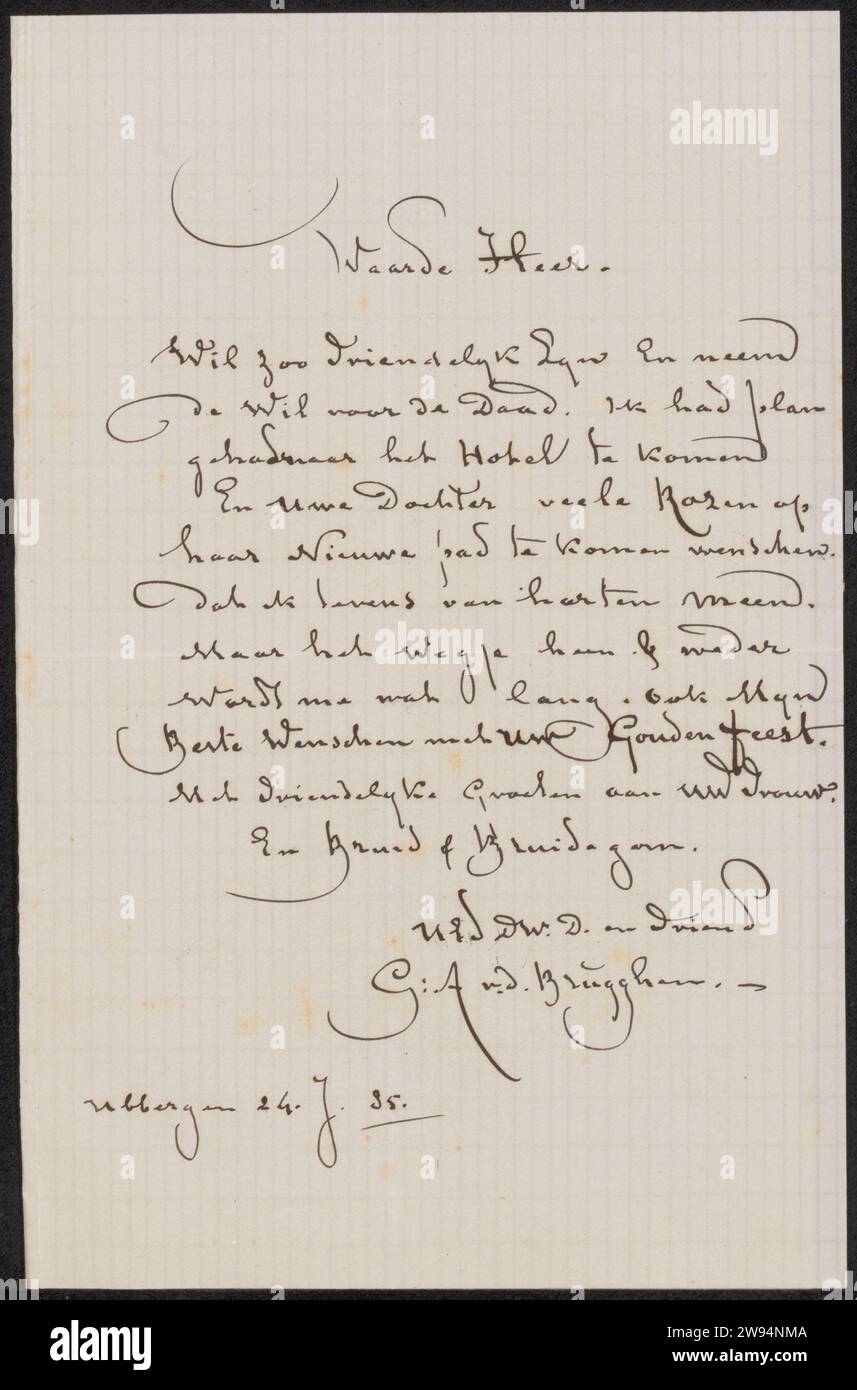 Waarde Heer.
Wil zoo vriendelyk zyn En neem
de Wil voor de Daad. ik had plan
gehad naar het Hotel te komen
En uwe Dochter veele Rozen op
haar Nieuwe pad te komen wenschen.
dat ik tevens van harten meen.
Maar het wegje heen & weder
Wordt me wat lang. ook Myn
Beste Wenschen met uw Gouden feest.
Met vriendelyke Groeten aan uw vrouw.
En Bruid & Bruidegom.
UEd DW. D. en vriend
G: A v.d. Brugghen. –
Ubbergen 24. J. 85.
alamy
www.alamy.com
Image ID: 2W94NMA